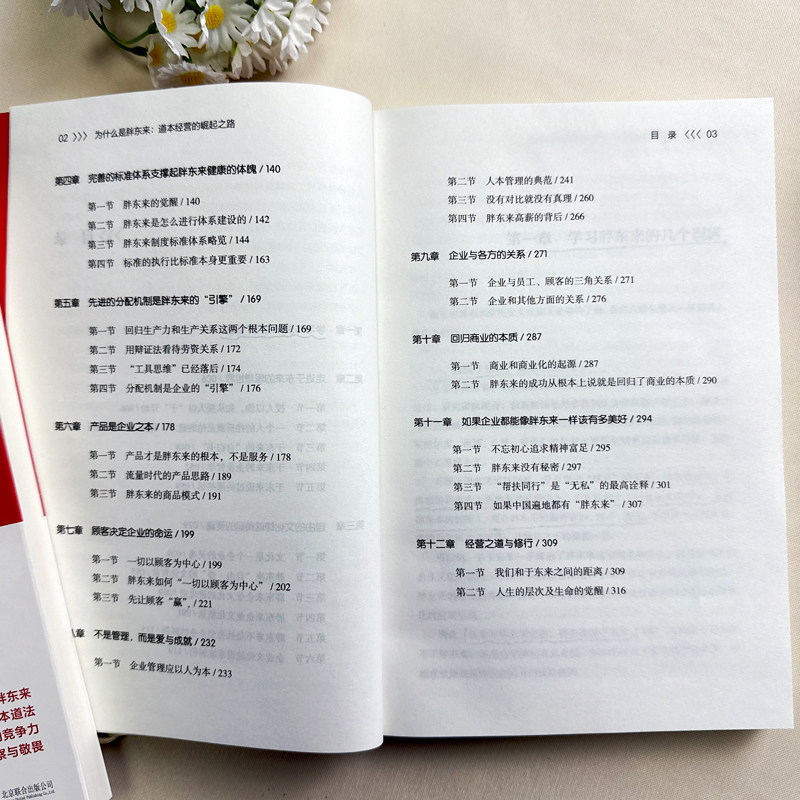 02 》》》 为什么是胖东来：道本经营的崛起之路
第四章 完善的标准体系支撑起胖东来健康的体魄 / 140
第一节 胖东来的觉醒 / 140
第二节 胖东来是怎么进行体系建设的 / 142
第三节 胖东来制度标准体系略览 / 144
第四节 标准的执行比标准本身更重要 / 163
第五章 先进的分配机制是胖东来的“引擎” / 169
第一节 回归生产力和生产关系这两个根本问题 / 169
第二节 用辩证法看待劳资关系 / 172
第三节 “工具思维”已经落后 / 174
第四节 分配机制是企业的“引擎” / 176
第六章 产品是企业之本 / 178
第一节 产品才是胖东来的根本，不是服务 / 178
第二节 流量时代的产品思路 / 189
第三节 胖东来的商品模式 / 191
第七章 顾客决定企业的命运 / 199
第一节 一切以顾客为中心 / 199
第二节 胖东来如何“一切以顾客为中心” / 202
第三节 先让顾客“赢” / 221
八章 不是管理，而是爱与成就 / 232
第一节 企业管理应以人为本 / 233
目 录 《《《 03
第二节 人本管理的典范 / 241
第三节 没有对比就没有真理 / 260
第四节 胖东来高薪的背后 / 266
第九章 企业与各方的关系 / 271
第一节 企业与员工、顾客的三角关系 / 271
第二节 企业和其他方面的关系 / 276
第十章 回归商业的本质 / 287
第一节 商业和商业化的起源 / 287
第二节 胖东来的成功从根本上说就是回归了商业的本质 / 290
第十一章 如果企业都能像胖东来一样该有多美好 / 294
第一节 不忘初心追求精神富足 / 295
第二节 胖东来没有秘密 / 297
第三节 “帮扶同行”是“无私”的最高诠释 / 301
第四节 如果中国遍地都有“胖东来” / 307
第十二章 经营之道与修行 / 309
第一节 我们和于东来之间的距离 / 309
第二节 人生的层次及生命的觉醒 / 316
胖东来
本道法
竞争力
察与敬畏
北京联合出版公司